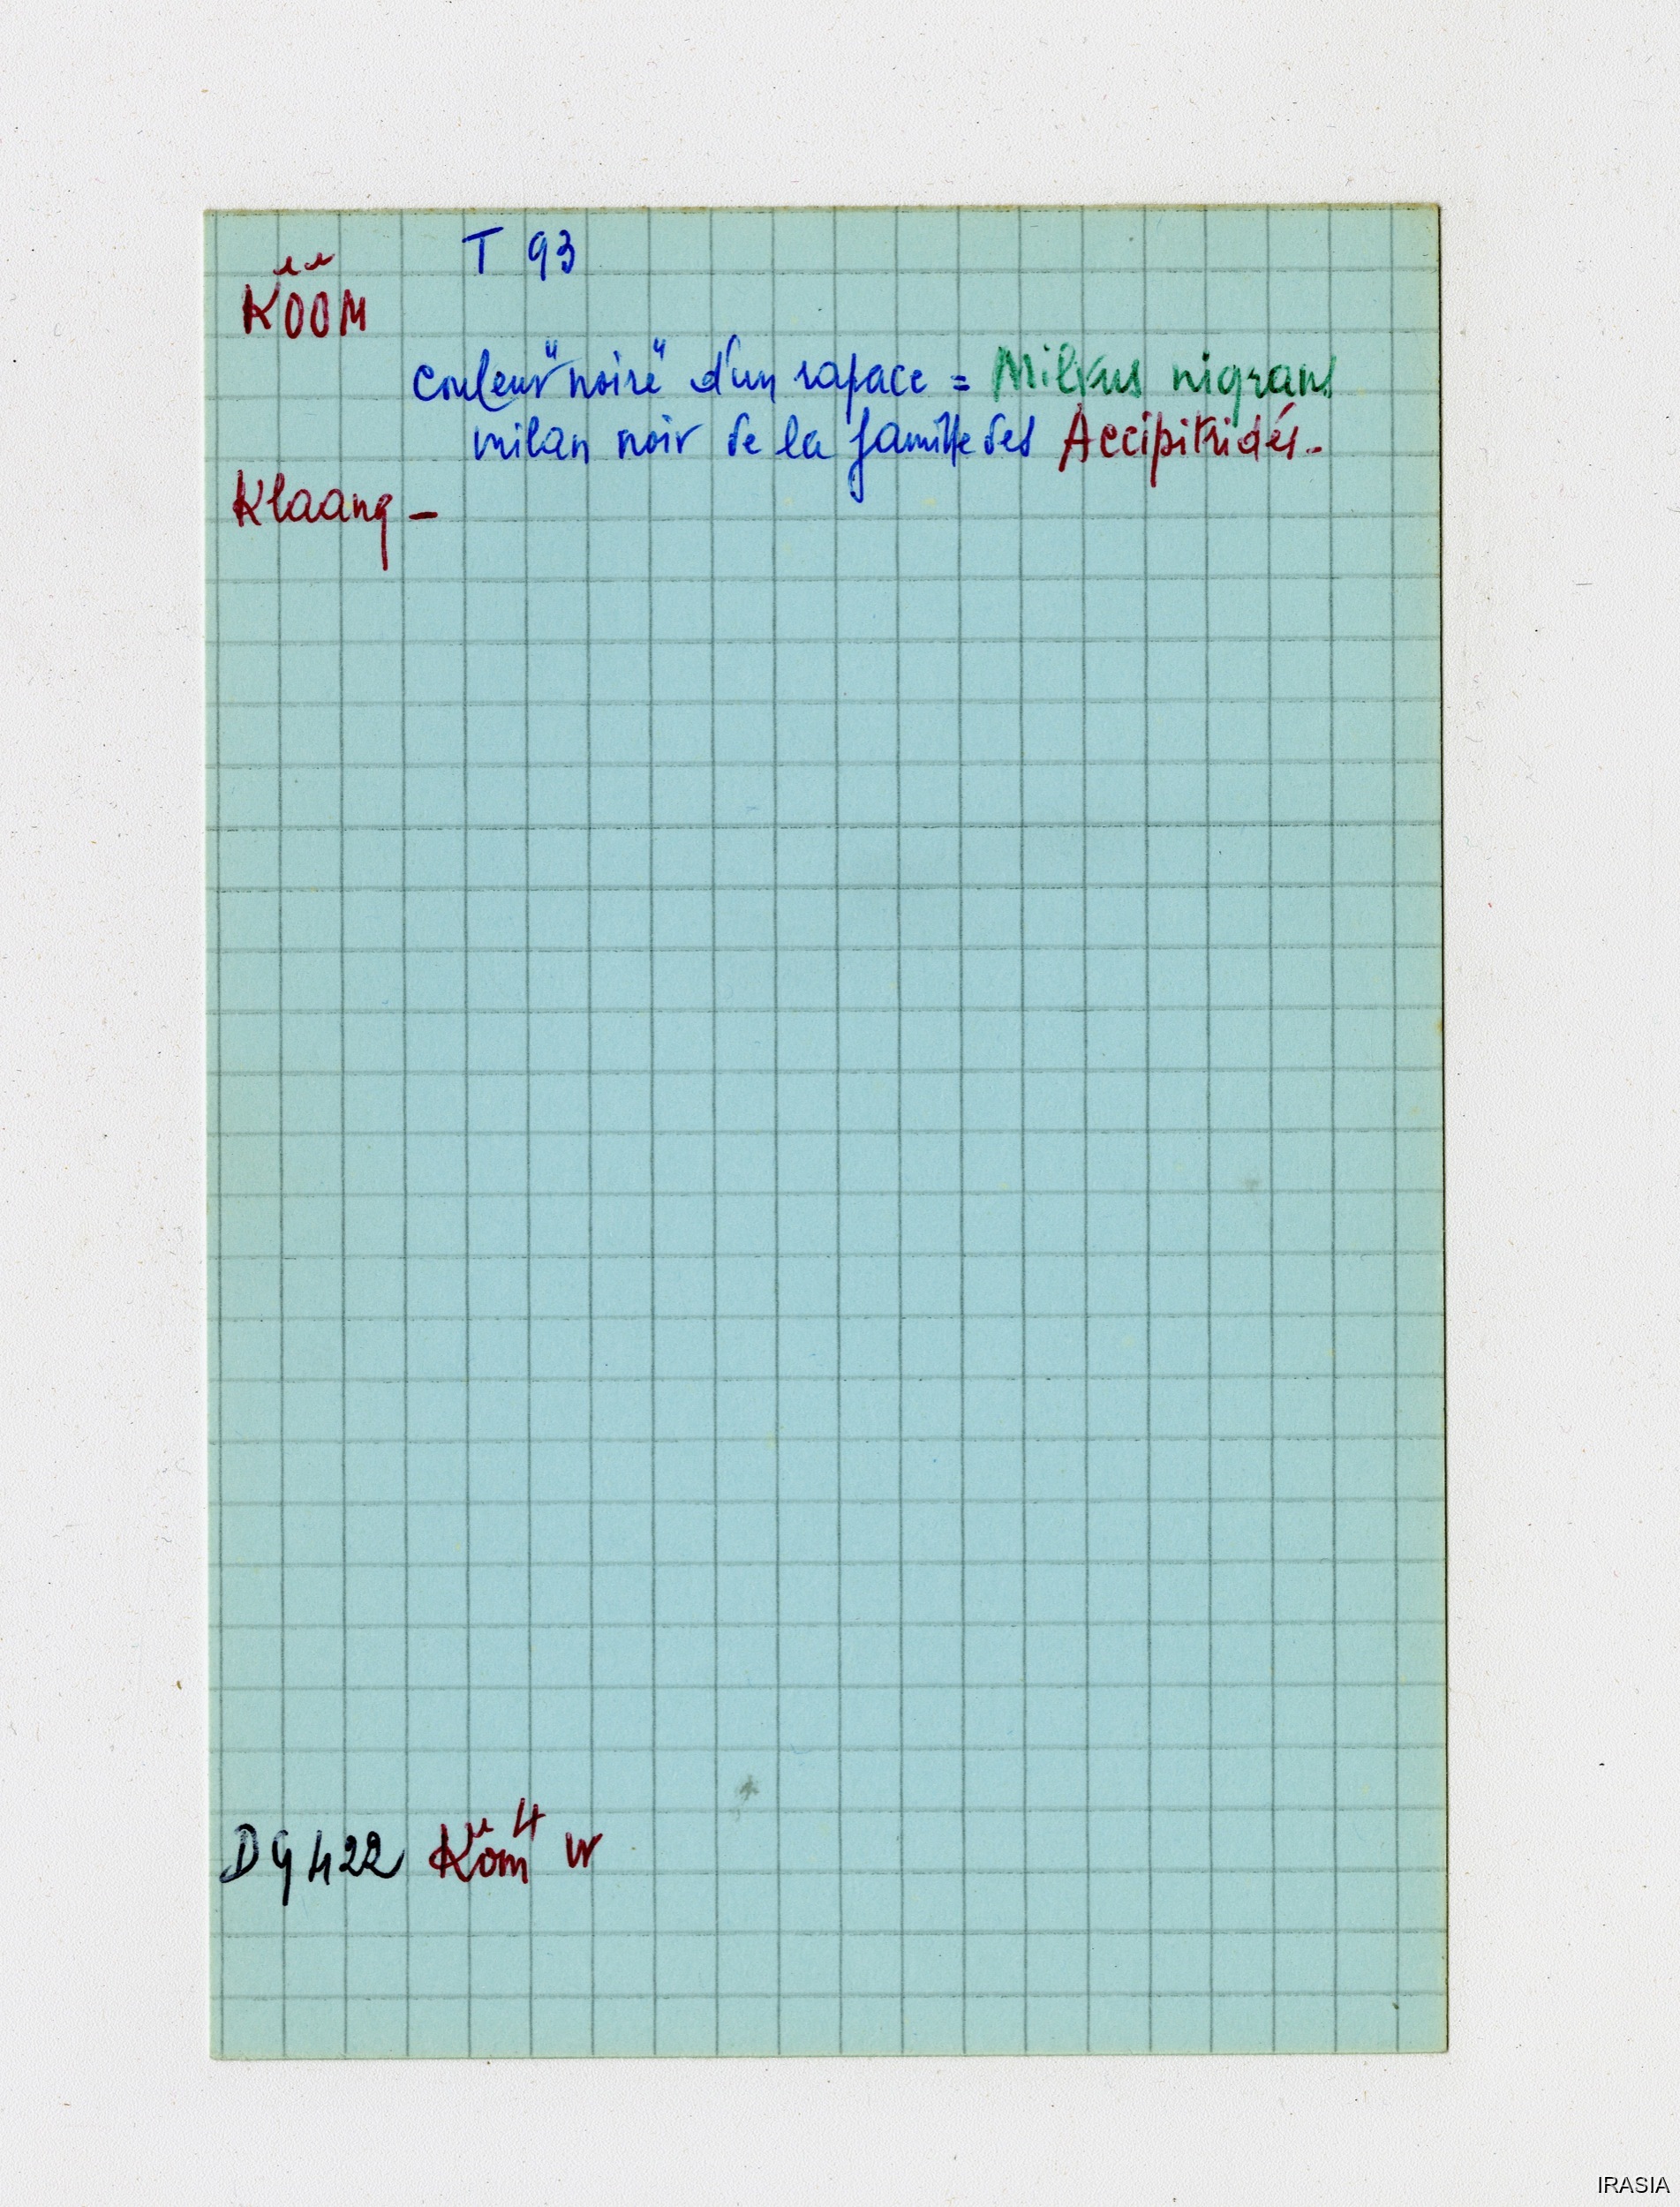 T 93
KÖÖM
couleur "noire" d'un rapace = Milvus nigrans
milan noir de la famille des Accipitridés -
Klaang -
D9 422 Köm⁴ W
IRASIA